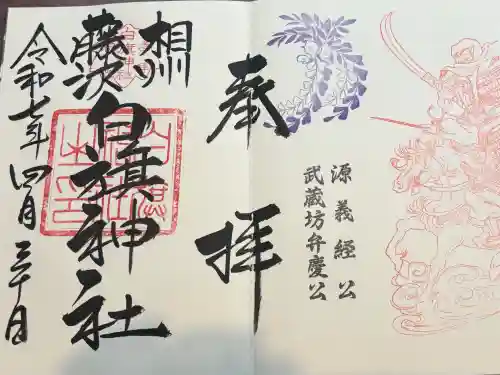 源義經公
武蔵坊弁慶公
奉拝
相州
藤沢白旗神社
令和七年四月三十日